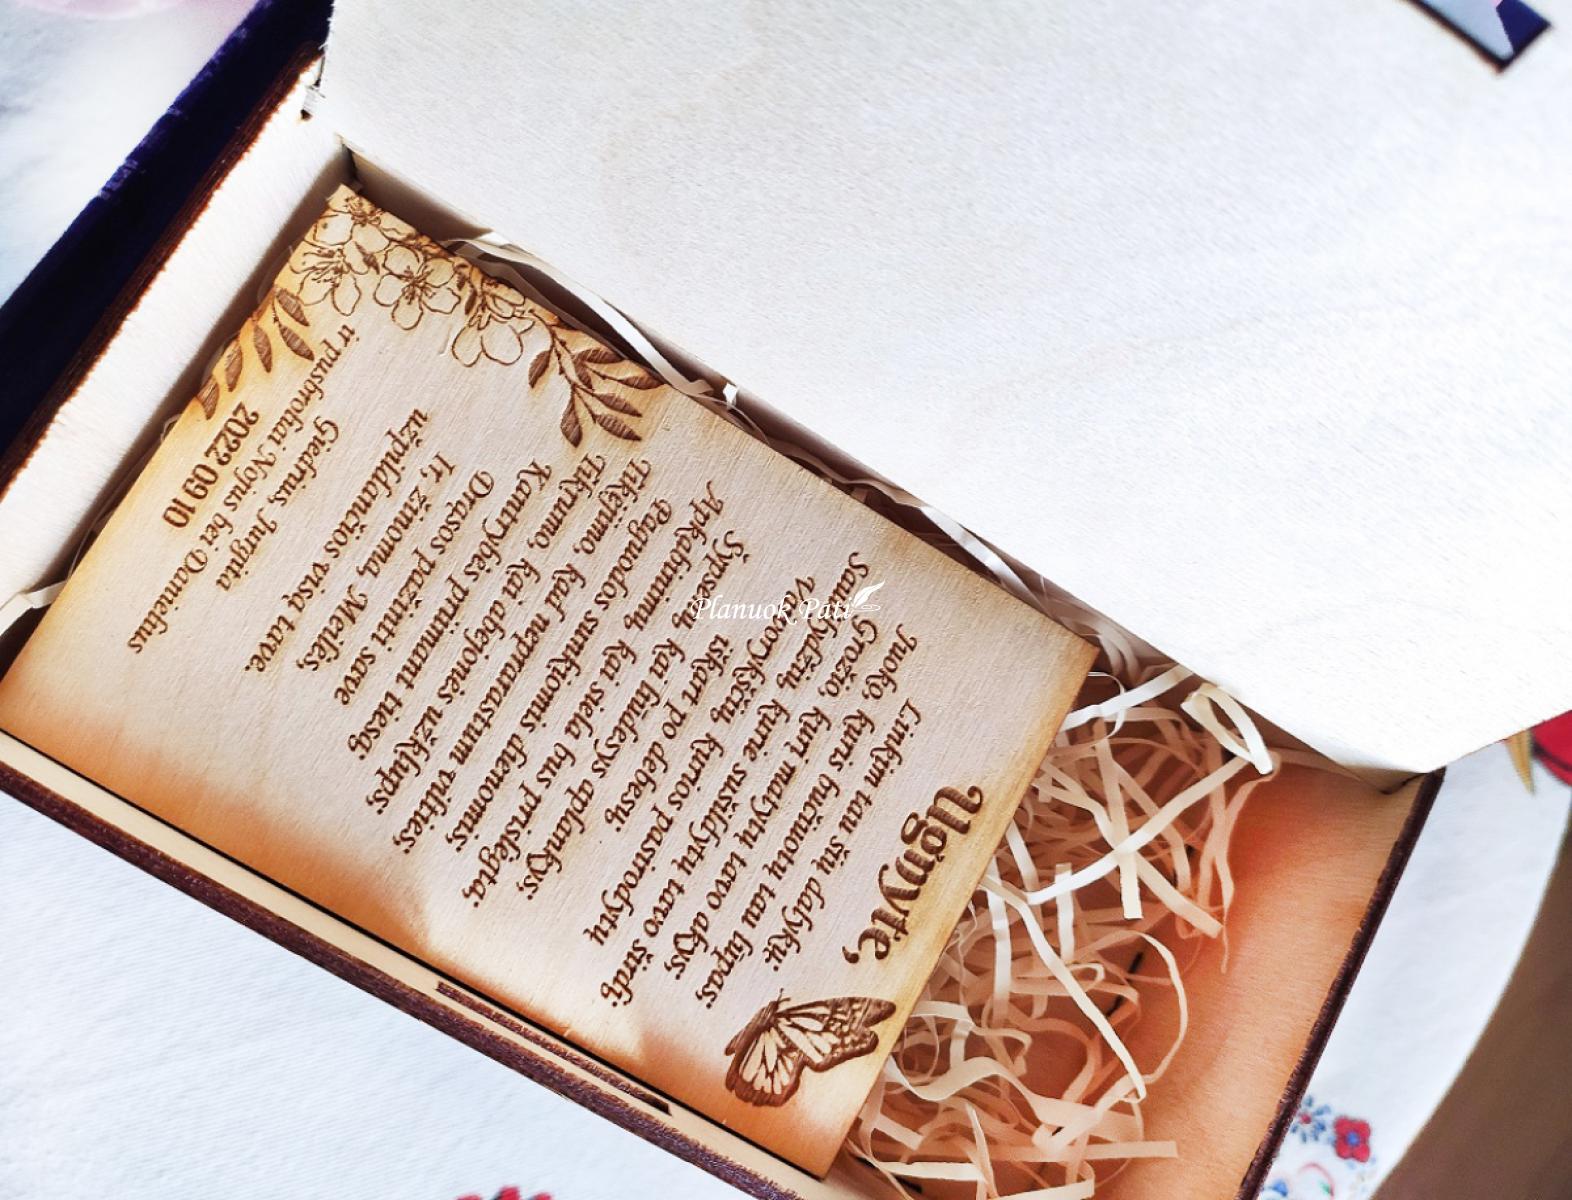 Ugnyte,
Linkim tau šių dalykų:
Juoko, kuris bučiuotų tau lūpas;
Grožio, kurį matytų tavo akys;
Saulydžių, kurie sušildytų tavo širdį;
Vaivorykščių, kurios pasirodytų
iškart po debesų;
Šypsenų, kai liūdesys aplankys;
Apkabinimų, kai siela bus prislėgta;
Paguodos sunkiomis dienomis;
Tikėjimo, kad neprarastum vilties;
Tikrumo, kai abejonės užklups;
Kantrybės priimant tiesą;
Drąsos pažinti save
Ir, žinoma, Meilės,
užpildančios visą tave.
Giedrius, Jurgita
ir pusbroliai Nojus bei Danielius
2022 09 10
Planuok Pati